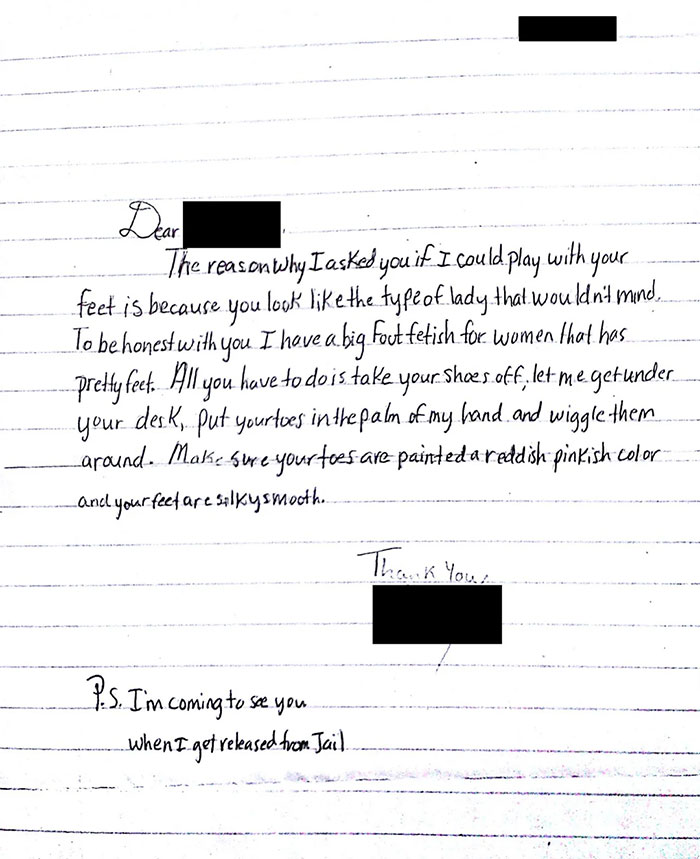 Dear
The reason why I asked you if I could play with your
feet is because you look like the type of lady that wouldn't mind.
To be honest with you I have a big Foot fetish for women that has
pretty feet. All you have to do is take your shoes off, let me get under
your desk, put your toes in the palm of my hand and wiggle them
around. Make sure your toes are painted a reddish pinkish color
and your feet are silky smooth.
Thank You,
P.S. I'm coming to see you
when I get released from Jail